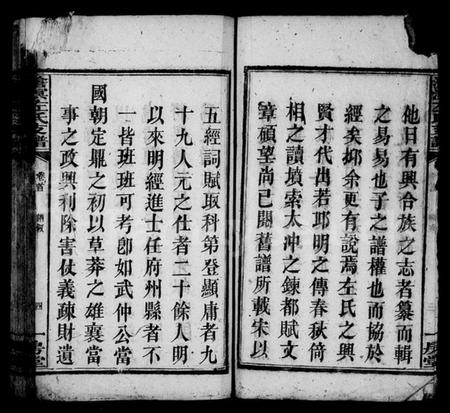 他日有興合族之志者纂而輯
之易易也予之譜權也而協於
經矣抑余更有說焉左氏之興
賢才代出若邱明之傳春秋倚
相之讀墳索太冲之鍊都賦文
章碩望尚已閱舊譜所載宋以
五經詞賦取科第登顯庸者九
十九人元之仕者二十餘人明
以來明經進士任府州縣者不
一皆班班可考卽如武仲公當
國朝定鼎之初以草莽之雄襄當
事之政興利除害仗義疎財遺
左氏支譜
卷首
四
一房堂